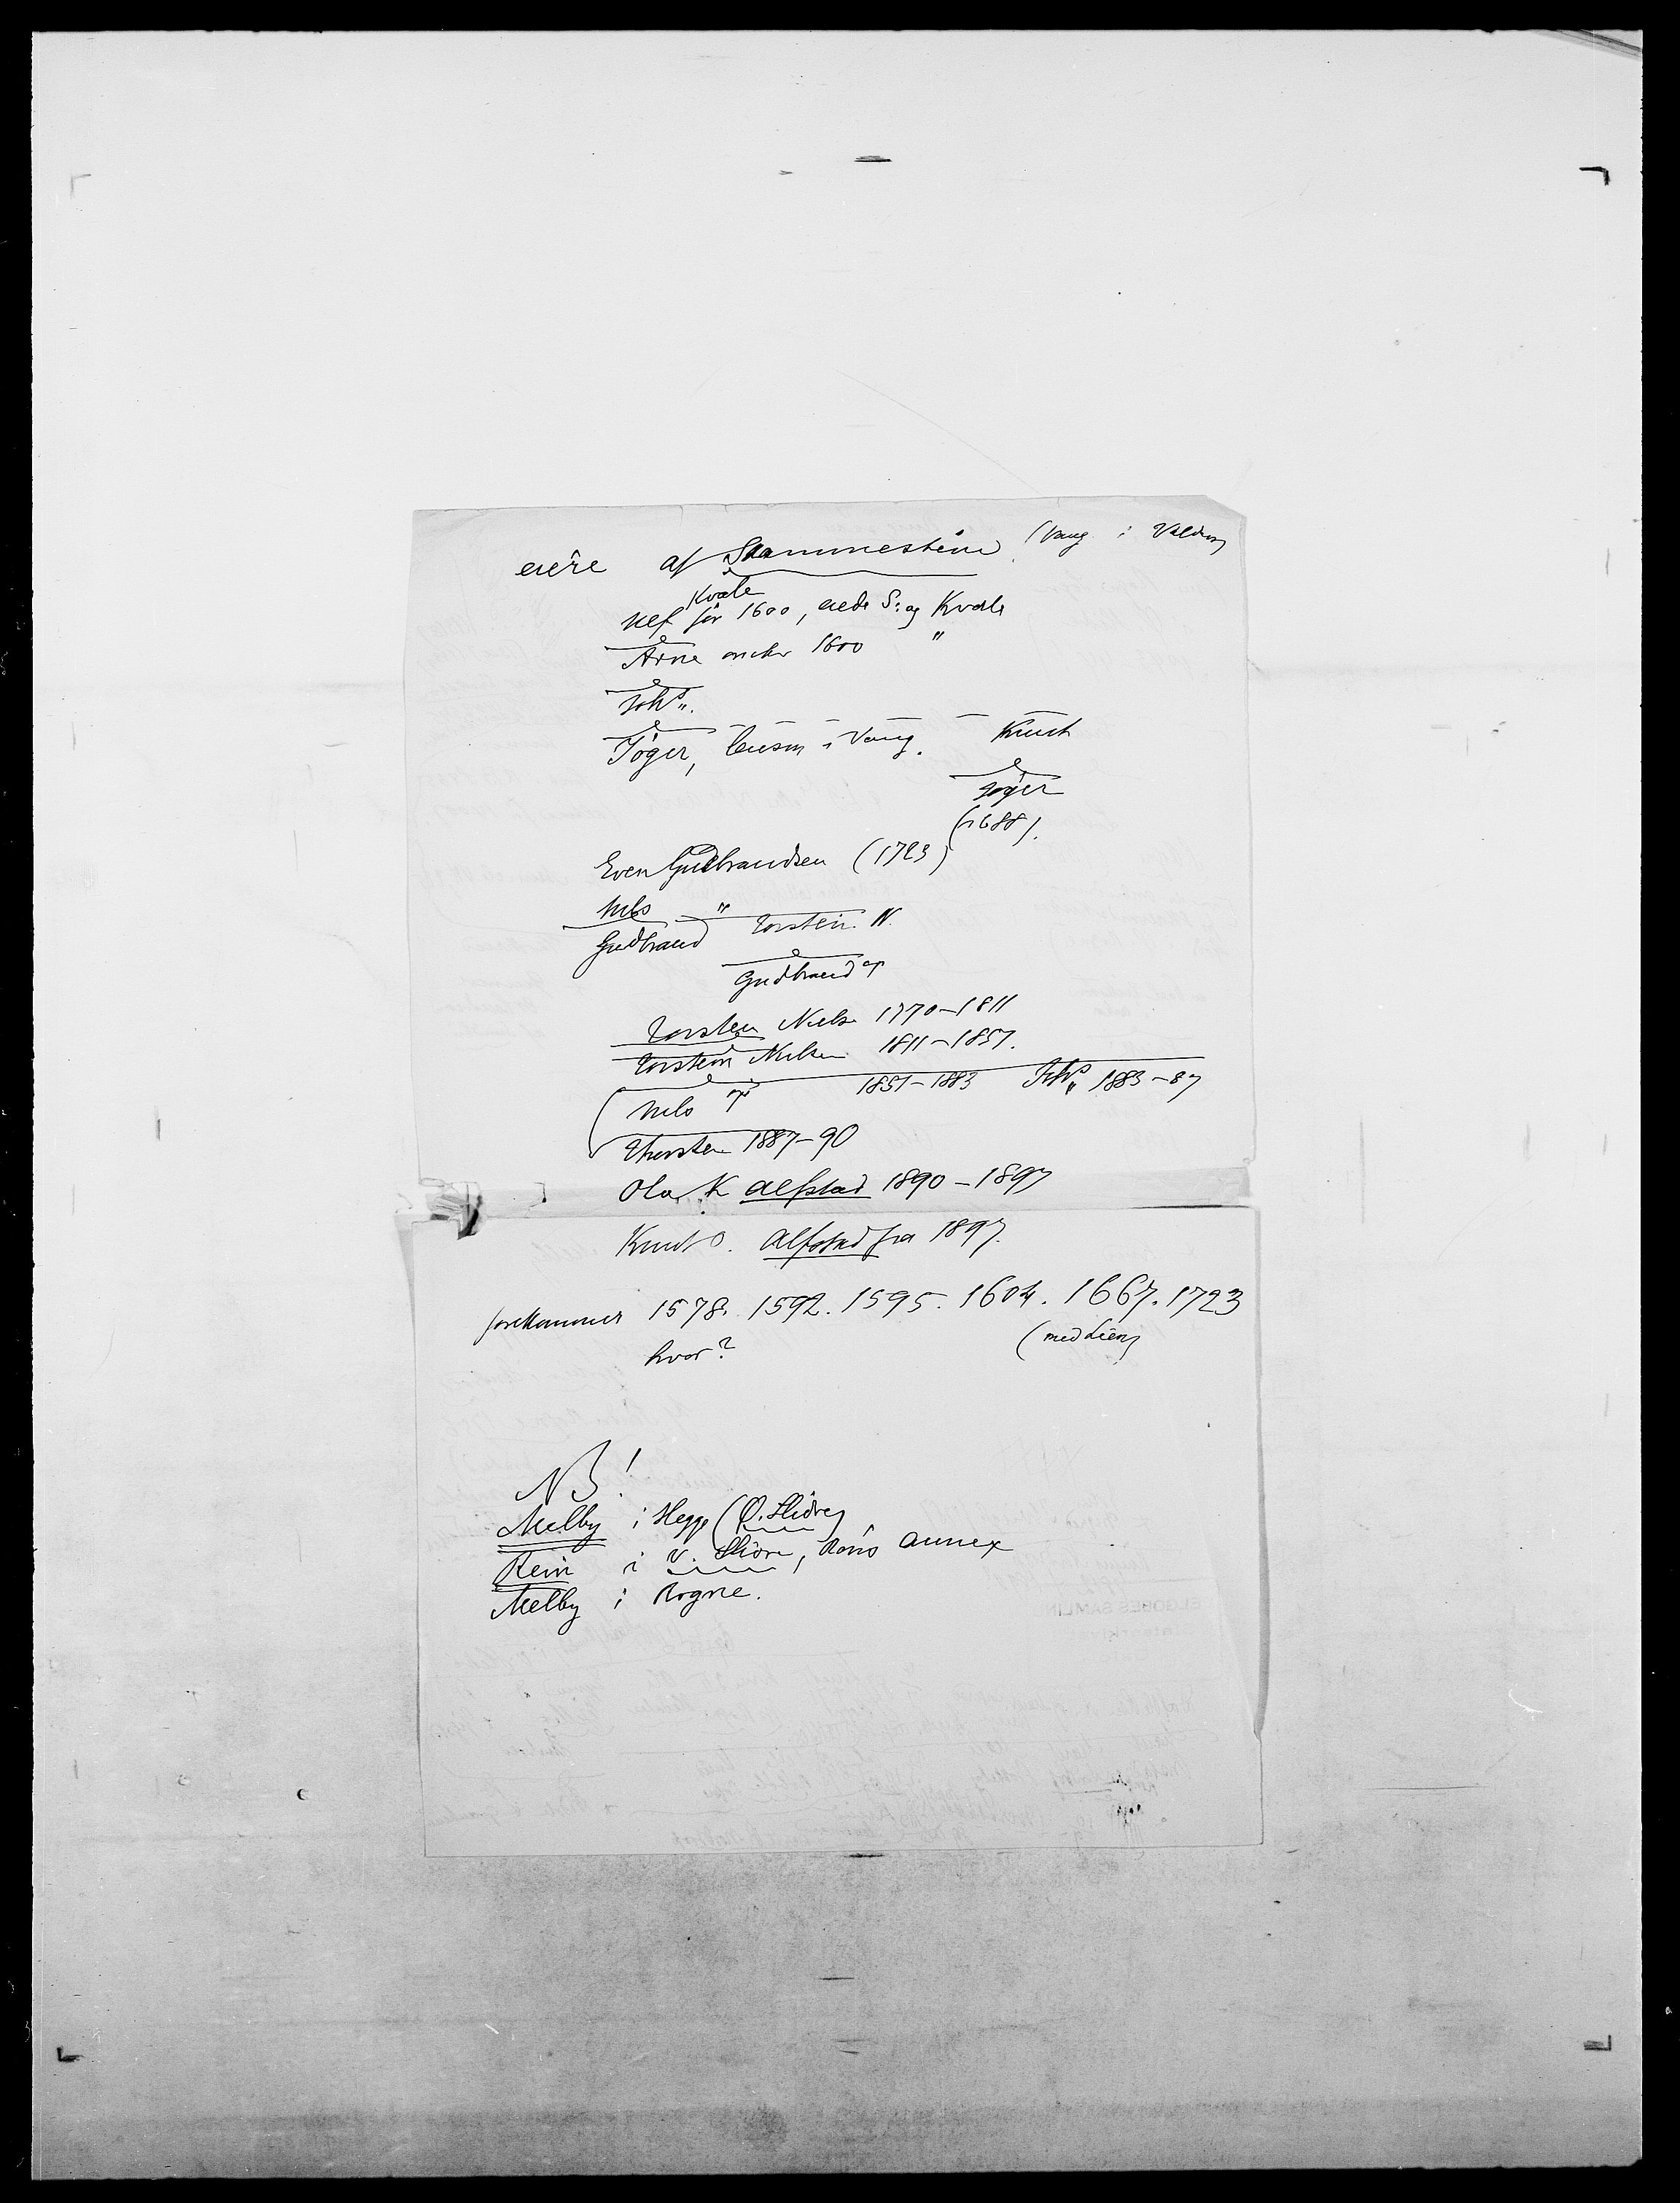 eiere af Skammestein (Vang i Valdres)
Kvale
Ulf før 1600, eiede S: og Kvale
Arne under 1600 "
Joh͞s.
Tøger, lensm i Vang. Knut
Tøger
(1688).
Even Gudbrandsen (1723)
Nils "
Gudbrand Torstein N.
Gudbrand
Torsten Niels 1770-1811
Torstein Nielsen 1811-1851.
Nils 1851-1883 Joh͞s 1883-87
Thorsten 1887-90
Ola K Alfstad 1890-1897
Knut O. Alfstad fra 1897.
forekommer 1578. 1592. 1595. 1604. 1667. 1723
hvor? (med Lien)
NB!
Melby i Hegge (Ø. Slidre)
Rein i V. Slidre, Røns annex
Melby i Rogne.